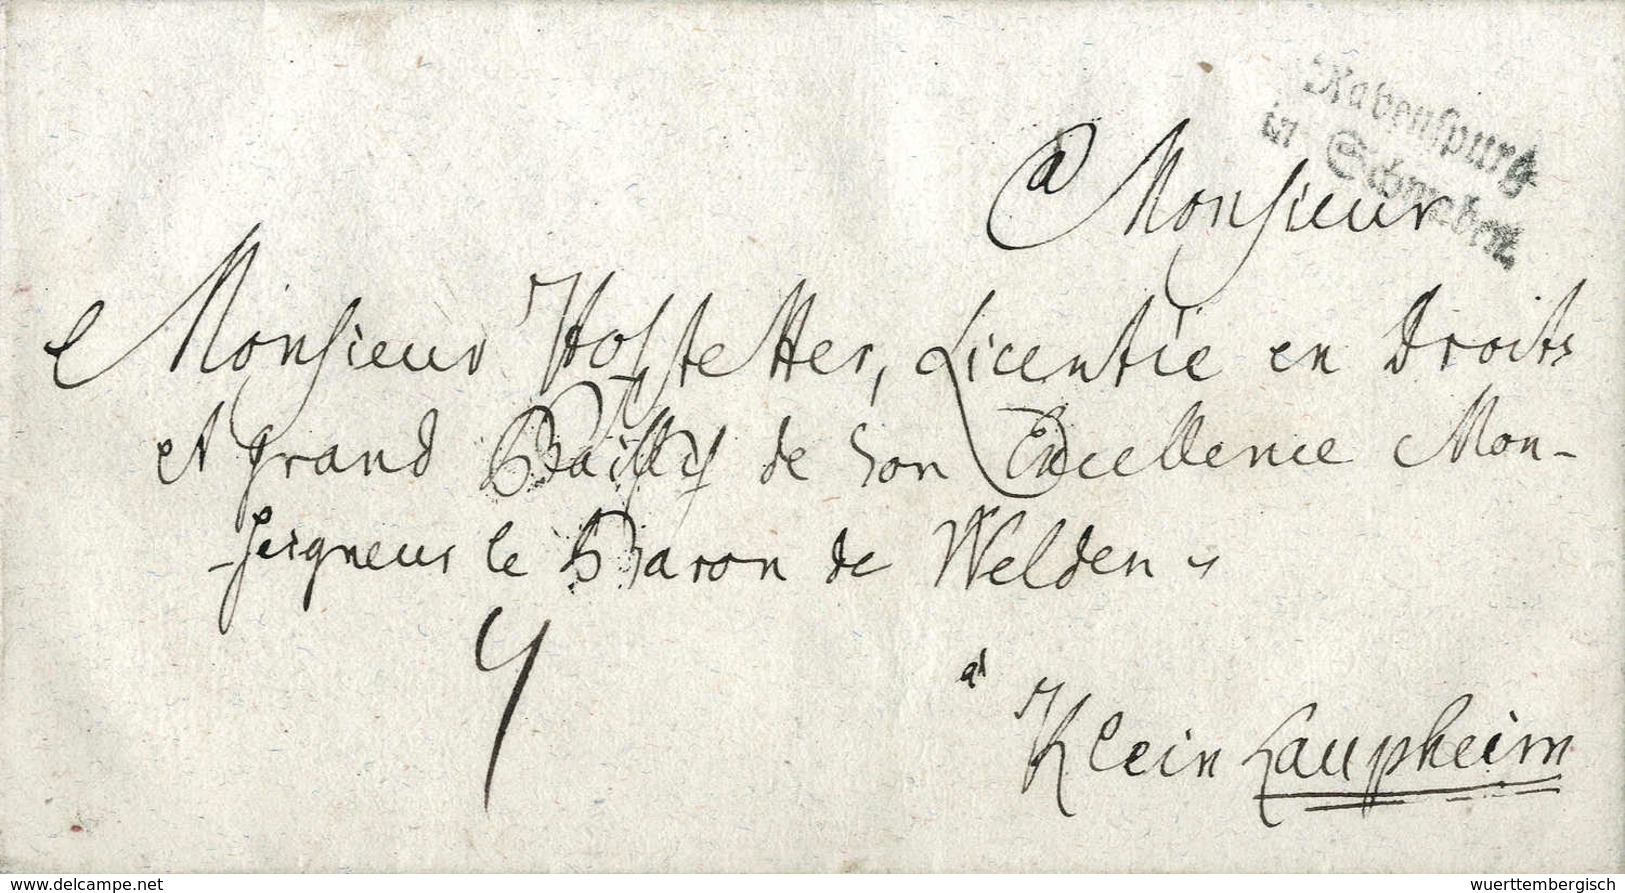 Ravenspurg
in Schwaben
a Monsieur
Monsieur Hofstetter, Licentié en Droits
et grand Bailly de son Excellence Mon-
-seigneur le Baron de Welden
4
a
Klein Laupheim
www.delcampe.net
wuerttembergisch